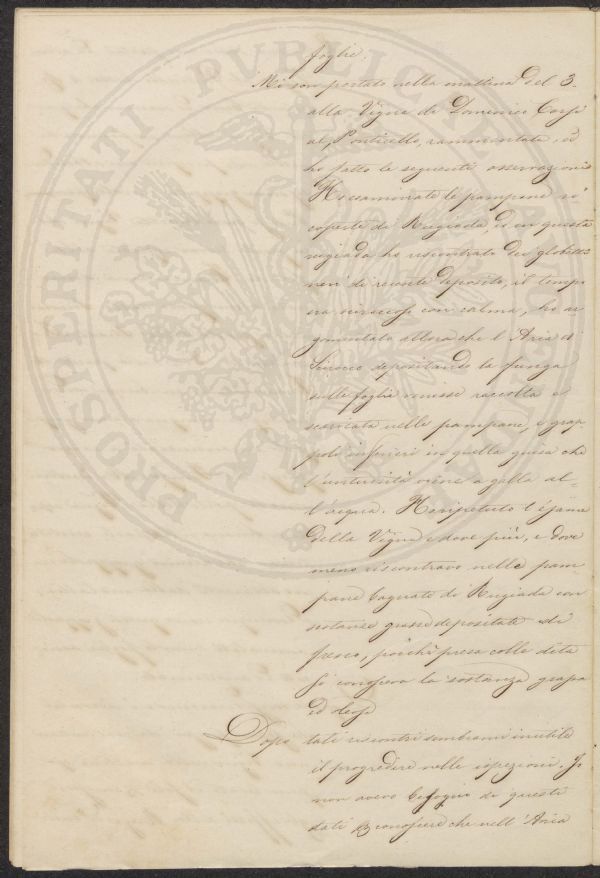 foglie.
Mi son portato nella mattina del 3.
alla Vigna di Domenico Corsi
al Ponticello, rammentata, ed
ho fatto le seguenti osservazioni
Ho esaminate le pampane ri
coperte di Rugiada, ed in questa
rugiada ho riscontrato dei globetti
neri di recente deposito, il tempo
era sciroccoso con calma, ho ar
gomentato allora che l'Aria di
Scirocco depositando la funga
sulle foglie venisse raccolta e
scaricata nelle pampane, e grap
poli inferiori in quella guisa che
l'untuosità viene a galla al-
l'acqua. Ho ripetuto l'esame
della Vigna e dove più, e dove
meno riscontravo nelle pam
pane bagnate di Rugiada con
sostanze grasse depositate di
fresco, poichè presa colle dita
si conosceva la sostanza grassa
ed oleosa
Dopo tali riscontri sembrami inutile
il progredire nelle ispezioni. Io
non avevo bisogno di questi
dati per conoscere che nell'Aria
PROSPERITATI PUBLICAE